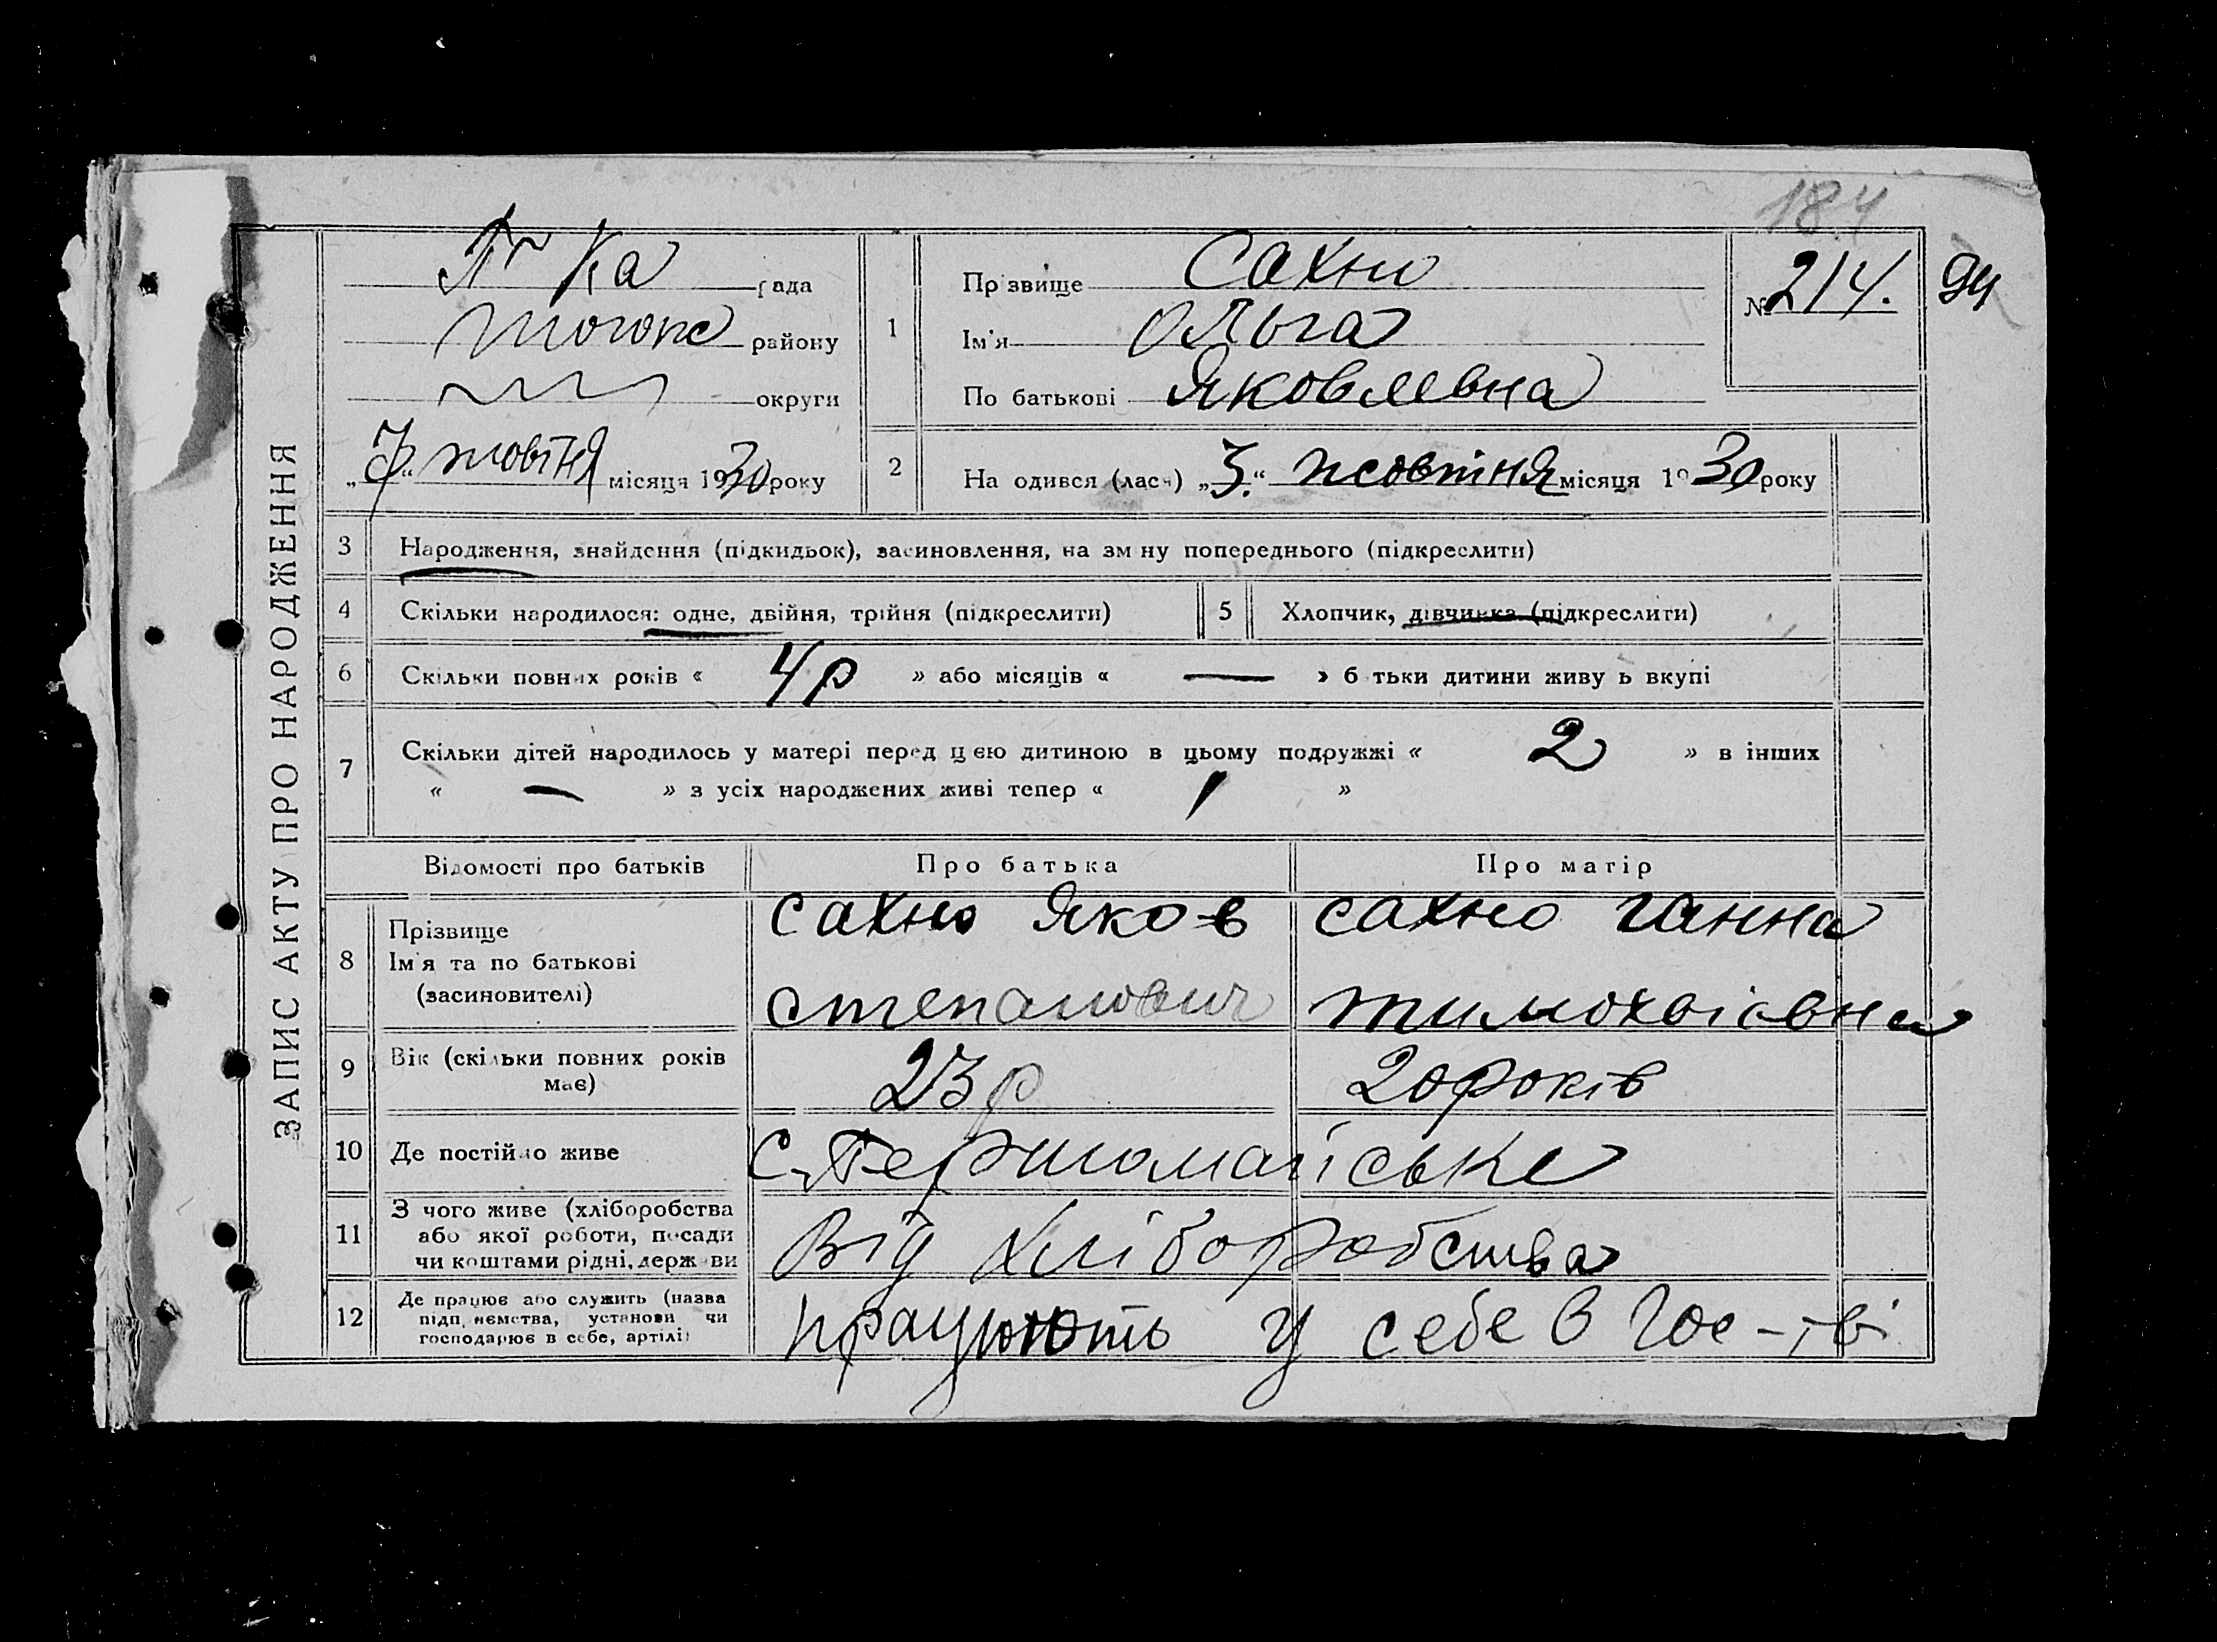 184
ЗАПИС АКТУ ПРО НАРОДЖЕННЯ
Ка рада
району
округи
"7" жовтня місяця 1930 року
1
Прізвище Сахно
Ім'я Ольга
По батькові Яковлевна
№ 214. 94
2 На одився (лась) "3." жовтня місяця 1930 року
3 Народження, знайдення (підкидьок), засиновлення, на зм ну попереднього (підкреслити)
4 Скільки народилося: одне, двійня, трійня (підкреслити)
5 Хлопчик, дівчинка (підкреслити)
6 Скільки повних років « 4 р » або місяців « — » б тьки дитини живу ь вкупі
7 Скільки дітей народилось у матері перед цією дитиною в цьому подружжі « 2 » в інших
« — » з усіх народжених живі тепер « 1 »
Відомості про батьків Про батька Про матір
8 Прізвище Ім'я та по батькові (засиновителі)
сахно Яков степанович
сахно ганна тимохвієвна
9 Вік (скільки повних років має) 23 р 20 років
10 Де постійно живе с. Першомайське
11 З чого живе (хліборобства або якої роботи, посади чи коштами рідні, держави Від хліборобства
12 Де працює або служить (назва підп иємства, установи чи господарює в себе, артілі) працюють у себе в гос-тві